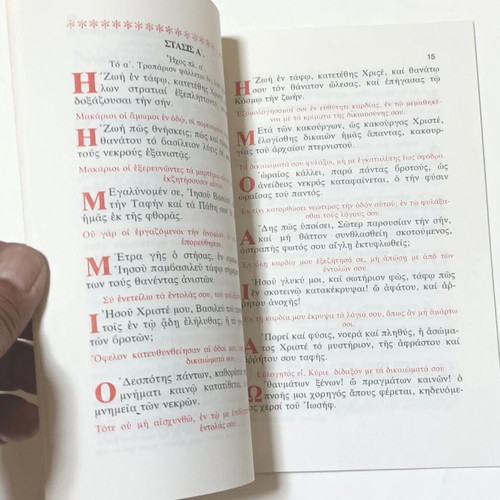 ΣΤΑΣΙΣ Α΄.
Ἦχος πλ. α΄
Τό α΄. Τροπάριον ψάλλεται δις
Ἡ Ζωή ἐν τάφῳ, κατετέθης Χριστέ,
λων στρατιαί ἐξεπλήττοντο,
δοξάζουσαι τήν σήν.
Μακάριοι οἱ ἄμωμοι ἐν ὁδῷ, οἱ πορευόμενοι
Ἡ Ζωή πῶς θνήσκεις; πῶς καί
θανάτου τό βασίλειον λύεις δέ,
τούς νεκρούς ἐξανιστᾷς.
Μακάριοι οἱ ἐξερευνῶντες τά μαρτύρια
ἐκζητήσουσιν αὐτόν.
Μεγαλύνομέν σε, Ἰησοῦ Βασιλεῦ
τήν Ταφήν καί τά Πάθη σου
ἡμᾶς ἐκ τῆς φθορᾶς.
Οὐ γάρ οἱ ἐργαζόμενοι τήν ἀνομίαν
ἐπορεύθησαν.
Μέτρα γῆς ὁ στήσας, ἐν
Ἰησοῦ παμβασιλεῦ τῆς
των τούς θανέντας ἀνιστῶν.
Σύ ἐνετείλω τάς ἐντολάς σου,
Ἰησοῦ Χριστέ μου, Βασιλεῦ τοῦ
τοῖς ἐν τῷ ᾅδῃ ἐλήλυθας; ἤ τό
τῶν βροτῶν;
Ὄφελον κατευθυνθείησαν αἱ ὁδοί μου,
δικαιώματά σου.
Ὁ Δεσπότης πάντων, καθορᾶται
μνήματι καινῷ κατατίθεται, ὁ
μνημεῖα τῶν νεκρῶν.
Τότε οὐ μή αἰσχυνθῶ, ἐν τῷ με ἐπιβλέπειν
ἐντολάς σου.
15
Ἡ Ζωή ἐν τάφῳ, κατετέθης Χριστέ, καί θανάτῳ
σου τόν θάνατον ὤλεσας, καί ἐπήγασας τῷ
Κόσμῳ τήν ζωήν.
Ἐξομολογήσομαί σοι ἐν εὐθύτητι καρδίας, ἐν τῷ μεμαθηκέ-
ναι με τά κρίματα τῆς δικαιοσύνης σου.
Μετά τῶν κακούργων, ὡς κακοῦργος Χριστέ,
ἐλογίσθης δικαιῶν ἡμᾶς ἅπαντας, κακουρ-
γίας τοῦ ἀρχαίου πτερνιστοῦ.
Τά δικαιώματά σου φυλάξω, μή με ἐγκαταλίπῃς ἕως σφόδρα.
Ὁ ὡραῖος κάλλει, παρά πάντας βροτούς, ὡς
ἀνείδεος νεκρός καταφαίνεται, ὁ τήν φύσιν
ὡραΐσας τοῦ παντός.
Ἐν τίνι κατορθώσει νεώτερος τήν ὁδόν αὐτοῦ; ἐν τῷ φυλάξα-
σθαι τούς λόγους σου.
ᾍδης πῶς ὑποίσει, Σῶτερ παρουσίαν τήν σήν,
καί μή θᾶττον συνθλασθείη σκοτούμενος,
ἀστραπῆς φωτός σου αἴγλῃ ἐκτυφλωθείς;
Ἐν ὅλῃ καρδίᾳ μου ἐξεζήτησά σε, μή ἀπώσῃ με ἀπό τῶν
ἐντολῶν σου.
Ἰησοῦ γλυκύ μοι, καί σωτήριον φῶς, τάφῳ πῶς
ἐν σκοτεινῷ κατακέκρυψαι! ὤ ἀφάτου, καί ἀρ-
ρήτου ἀνοχῆς!
Ἐν τῇ καρδίᾳ μου ἔκρυψα τά λόγιά σου, ὅπως ἄν μή ἁμάρτω
σοι.
Ἀπορεῖ καί φύσις, νοερά καί πληθύς, ἡ ἀσώμα-
τος Χριστέ τό μυστήριον, τῆς ἀφράστου καί
ἀρρήτου σου ταφῆς.
Εὐλογητός εἶ, Κύριε, δίδαξόν με τά δικαιώματά σου.
Ὤ θαυμάτων ξένων! ὤ πραγμάτων καινῶν! ὁ
πνοῆς μοι χορηγός ἄπνους φέρεται, κηδευόμε-
νος χερσί τοῦ Ἰωσήφ.